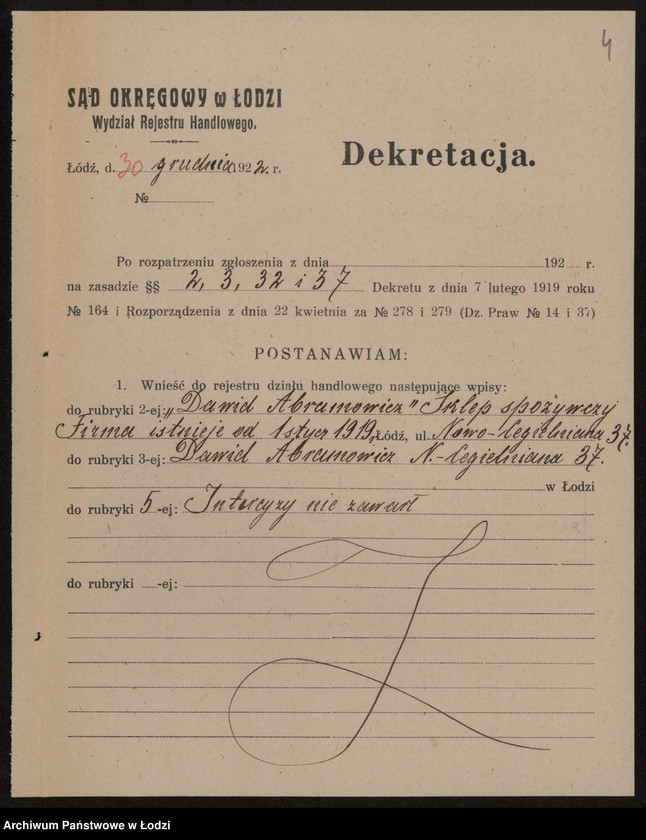 4
SĄD OKRĘGOWY w ŁODZI
Wydział Rejestru Handlowego.
Łódź, d. 30 grudnia 1922 r.
Dekretacja.
№
Po rozpatrzeniu zgłoszenia z dnia 192 r.
na zasadzie §§ 2, 3, 32 i 37 Dekretu z dnia 7 lutego 1919 roku
№ 164 i Rozporządzenia z dnia 22 kwietnia za № 278 i 279 (Dz. Praw № 14 i 37)
POSTANAWIAM:
1. Wnieść do rejestru działu handlowego następujące wpisy:
do rubryki 2-ej: „Dawid Abramowicz" Sklep spożywczy
Firma istnieje od 1 stycz 1919, Łódź, ul. Nowo-Cegielniana 37.
do rubryki 3-ej: Dawid Abramowicz N.-Cegielniana 37.
w Łodzi
do rubryki 5-ej: Intercyzy nie zawarł
do rubryki -ej:
Archiwum Państwowe w Łodzi